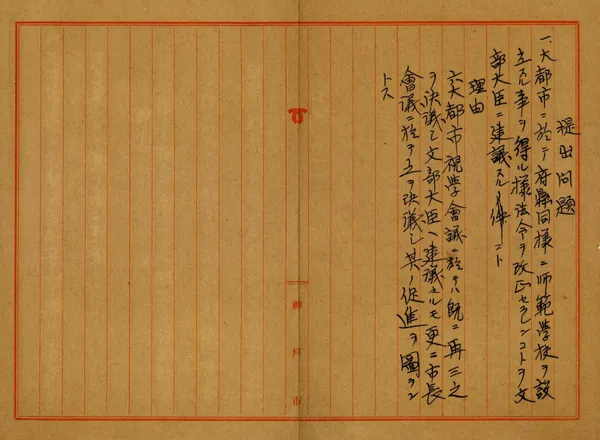 提出問題
一、大都市ニ於テ府縣同様ニ師範學校ヲ設
立スル事ヲ得ル様法令ヲ改正セラレンコトヲ文
部大臣ニ建議スルノ件
理由
六大都市視学會議ニ於テハ既ニ再三之
ヲ決議シ文部大臣ヘ建議セルモ更ニ市長
會議ニ於テ之ヲ決議シ其ノ促進ヲ圖ラン
トス
神戸市